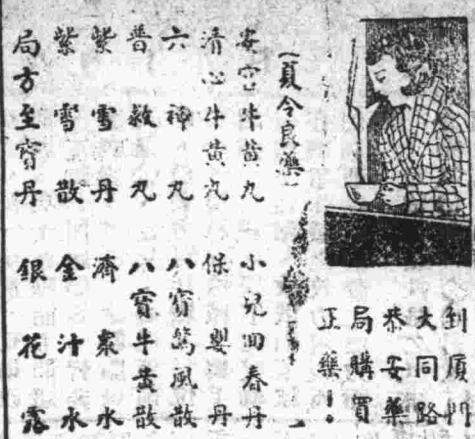 到厦門
大同路
泰安藥
局購買
正藥！
（夏令良藥）
安宮牛黃丸 小兒回春丹
清心牛黃丸 保嬰丹
六神丸 八寶驚風散
普救丸 八寶牛黃散
紫雪丹 濟衆水
紫雪散 金汁水
局方至寶丹 銀花露